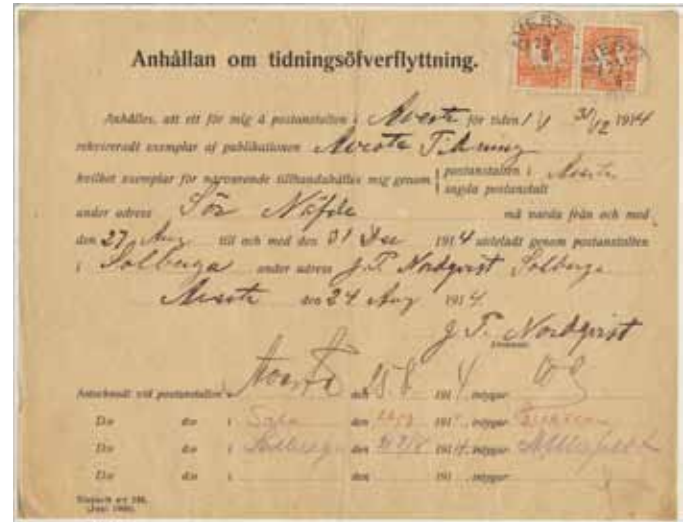 AVESTA
AVESTA
Anhållan om tidningsöfverflyttning.
Anhålles, att ett för mig å postanstalten i Avesta för tiden 1/1 31/12 1914
rekvireradt exemplar af publikationen Avesta Tidning
hvilket exemplar för närvarande tillhandahålles mig genom postanstalten i Avesta
ångda postanstalt
under adress Sör Näfde må varda från och med
den 27 Aug till och med den 31 Dec 1914 utdeladt genom postanstalten
i Solberga under adress J. P. Nordqvist Solberga
Avesta den 24 Aug 1914.
J. P. Nordqvist
Antecknadt vid postanstalten i Avesta den 25/8 1914 intygar
D:o d:o i den 191 intygar
D:o d:o i Solberga den 27/8 1914 intygar
D:o d:o i den 191 intygar
Blankett n:r 198.
(Juni 1906).